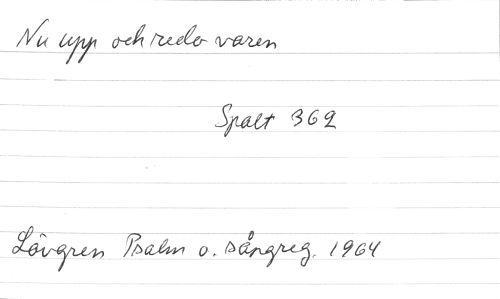 Nu upp och redo varen
Spalt 362
Lövgren Psalm o. sångreg. 1964